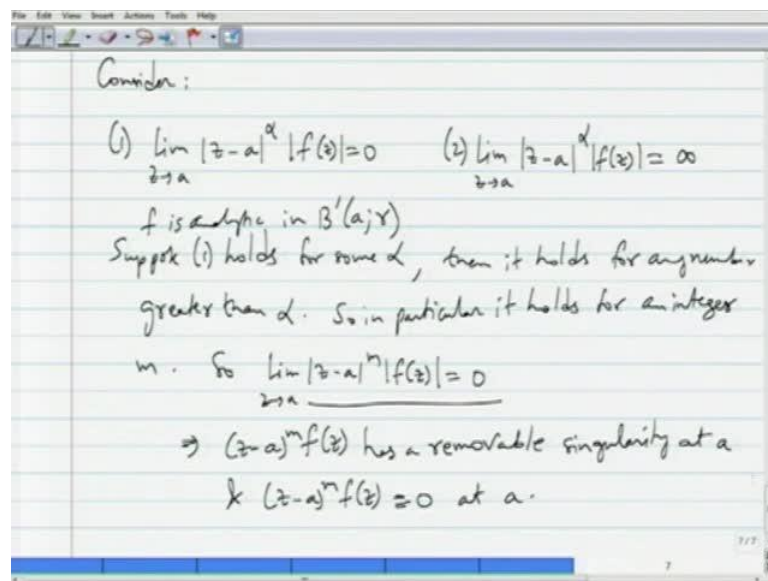 File Edit View Insert Actions Tools Help
Consider:
(1) lim |z-a|^α |f(z)|=0 (2) lim |z-a|^α |f(z)| = ∞
z→a z→a
f is analytic in B'(a;r)
Suppose (1) holds for some α, then it holds for any number
greater than α. So in particular it holds for an integer
m. So lim |z-a|^m |f(z)| = 0
z→a
⇒ (z-a)^m f(z) has a removable singularity at a
& (z-a)^m f(z) = 0 at a.
7/7
7